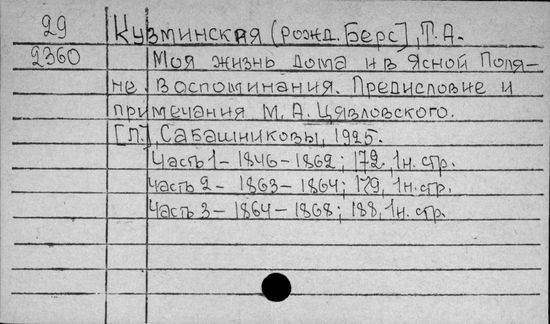 29 Кузминская (рожд. Берс), Т.А.
2360 Моя жизнь дома и в Ясной Поля-
не. Воспоминания. Предисловие и
примечания М.А. Цявловского.
[Л.], Сабашниковы, 1925.
Часть 1 – 1846 – 1862; 172, 1н. стр.
Часть 2 – 1863 – 1864; 179, 1н. стр.
Часть 3 – 1864 – 1868; 188, 1н. стр.